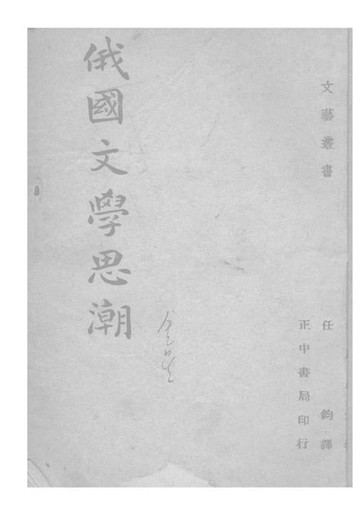 文藝叢書
任鈞譯
正中書局印行
俄國文學思潮